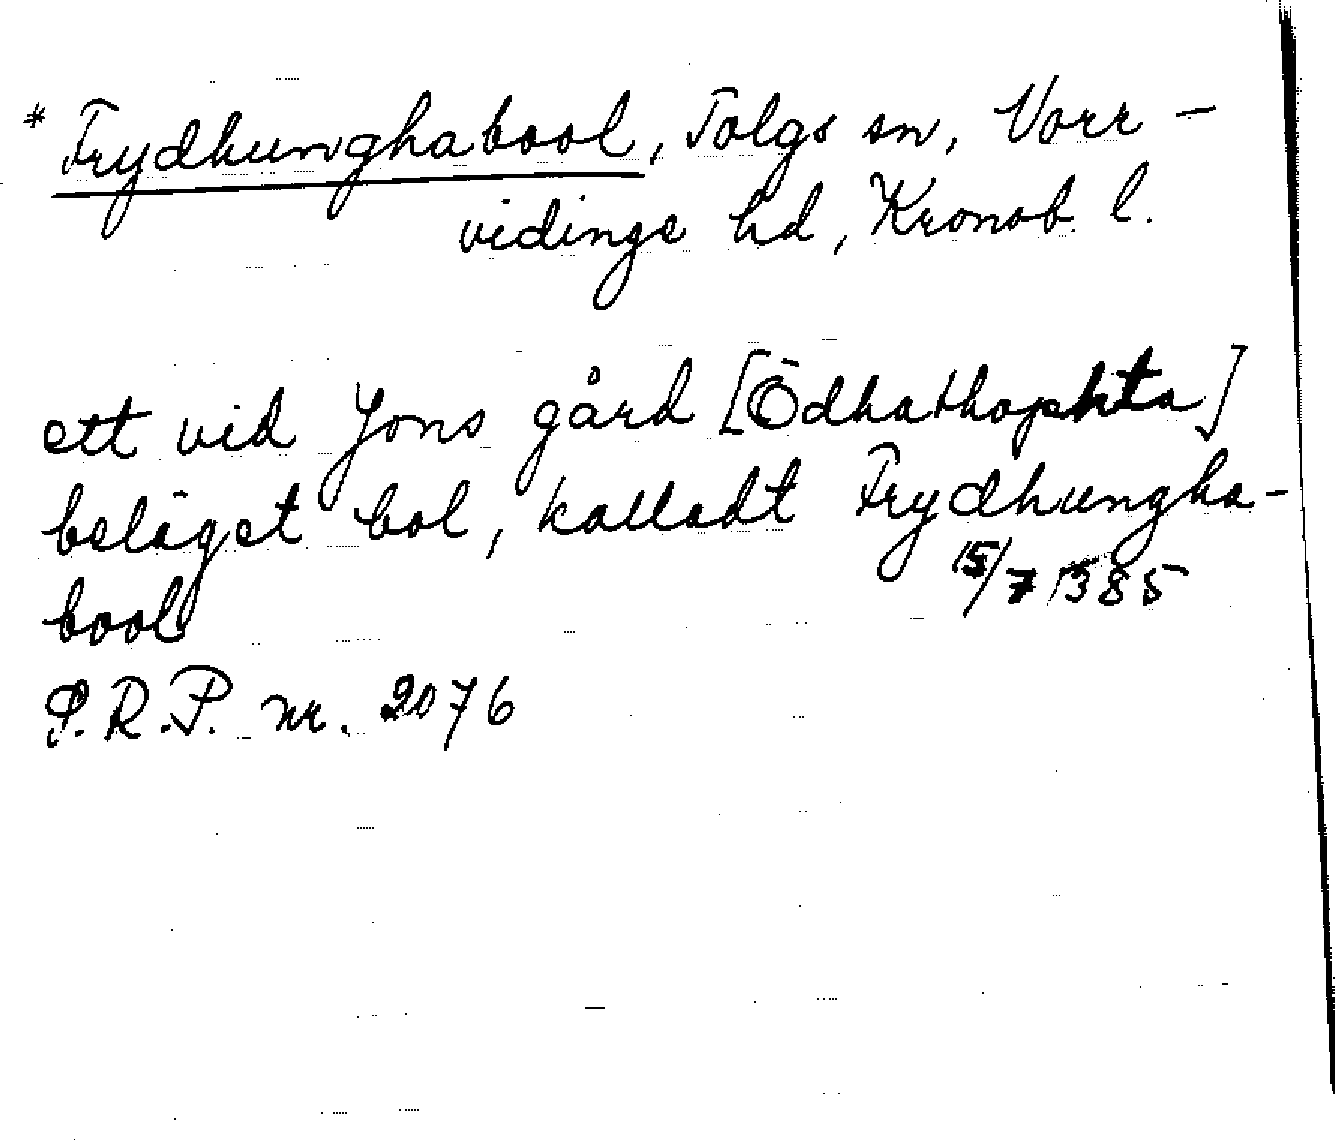 * Frydhunghabool, Tolgs sn, Vorr-
vidinge hd, Kronob. l.
ett vid Jons gård [Ödhathophta]
beläget bol, kalladt Frydhungha-
bool 15/7 1385
S.R.P. nr. 2076